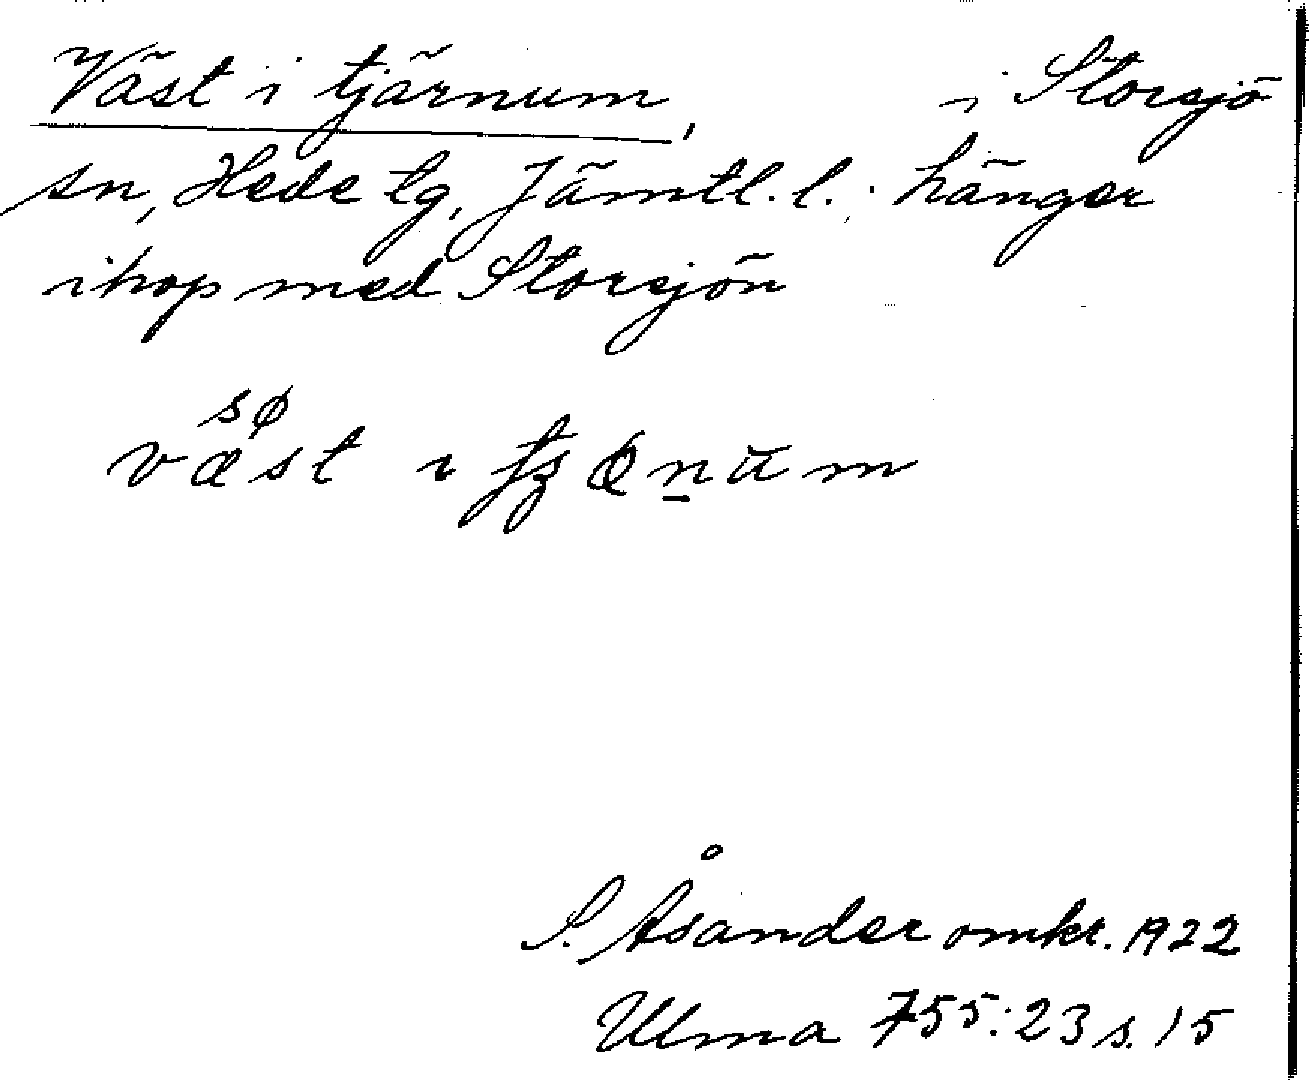 Väst i tjärnum, i Storsjö
sn, Hede tg, Jämtl. l.; hänger
ihop med Storsjön
sø
væst ı
S. Åsander omkr. 1922
Ulma 755:23 s. 15